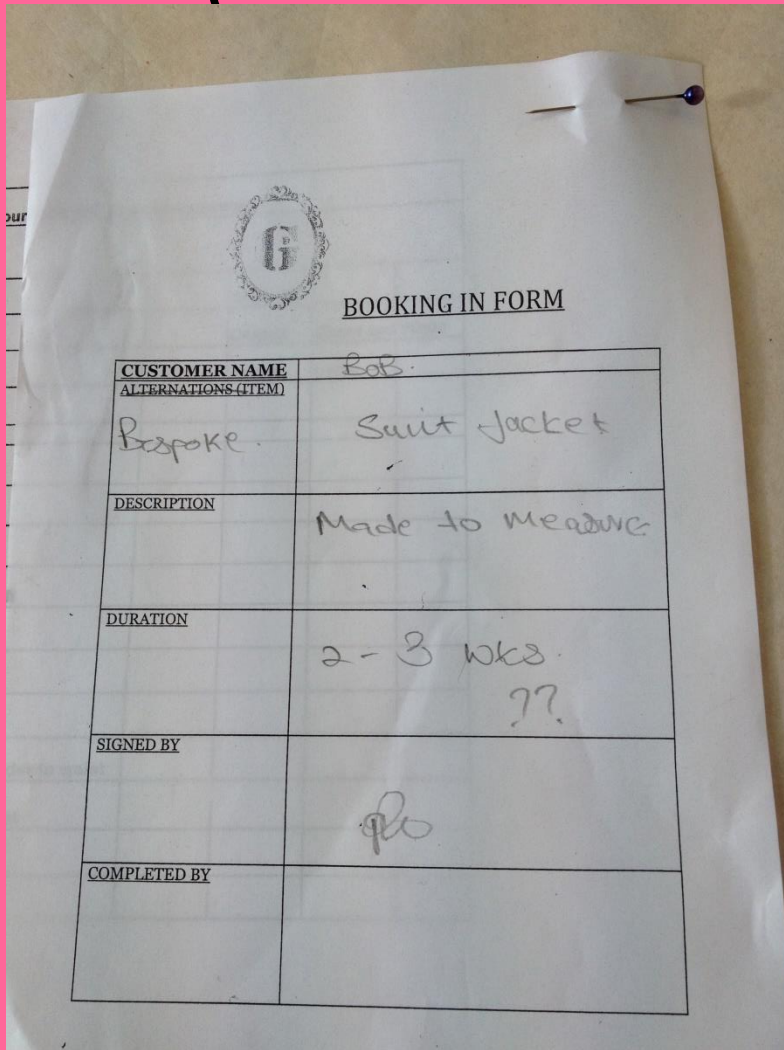 our
G
BOOKING IN FORM
CUSTOMER NAME BOB.
ALTERNATIONS (ITEM)
Bespoke. Suit Jacket
DESCRIPTION
Made to Measure
DURATION
2-3 wks.
??
SIGNED BY
COMPLETED BY